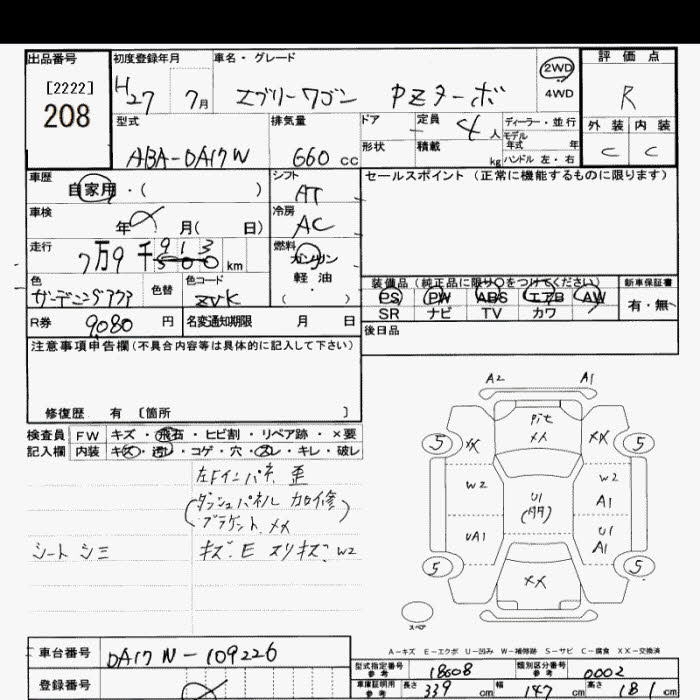 出品番号
[2222]
208
初度登録年月
H27 7月
車名・グレード
エブリーワゴン PZターボ
2WD
4WD
評価点
R
外装 内装
C C
型式
ABA-DA17W
排気量
660 cc
ドア
形状
定員 4 人
積載 kg
ディーラー・並行
モデル年式 年
ハンドル 左・右
車歴
自家用・( )
シフト
AT
車検
年 月( 日)
冷房
AC
走行
7万9千913 500 km
燃料
ガソリン
軽油
( )
色
色替
色コード
ZVK
R券 9080 円
名変通知期限 月 日
セールスポイント (正常に機能するものに限ります)
装備品(純正品に限り○をつけてください)
PS PW ABS エアB AW
SR ナビ TV カワ
新車保証書
有・無
後日品
注意事項申告欄(不具合内容等は具体的に記入して下さい)
修復歴 有 [箇所 ]
検査員 FW キズ・飛石・ヒビ割・リペア跡・×要
記入欄 内装 キズ・汚レ・コゲ・穴・スレ・キレ・破レ
左Fインパネ 歪
(ダッシュパネル 加修)
ブラケット XX
シート シミ
キズ、E スリキズ、W2
A2 A1
5 XX Pit XX XX 5
W2 W2
U1 A1
UA1 U1 A1
5 XX 5
スペア
A－キズ E－エクボ U－凹み W－補修跡 S－サビ C－腐食 XX－交換済
車台番号
DA17W-109226
登録番号
型式指定番号 参考 18608
類別区分番号 参考 0002
車庫証明用 参考 長さ 339 cm 幅 147 cm 高さ 181 cm